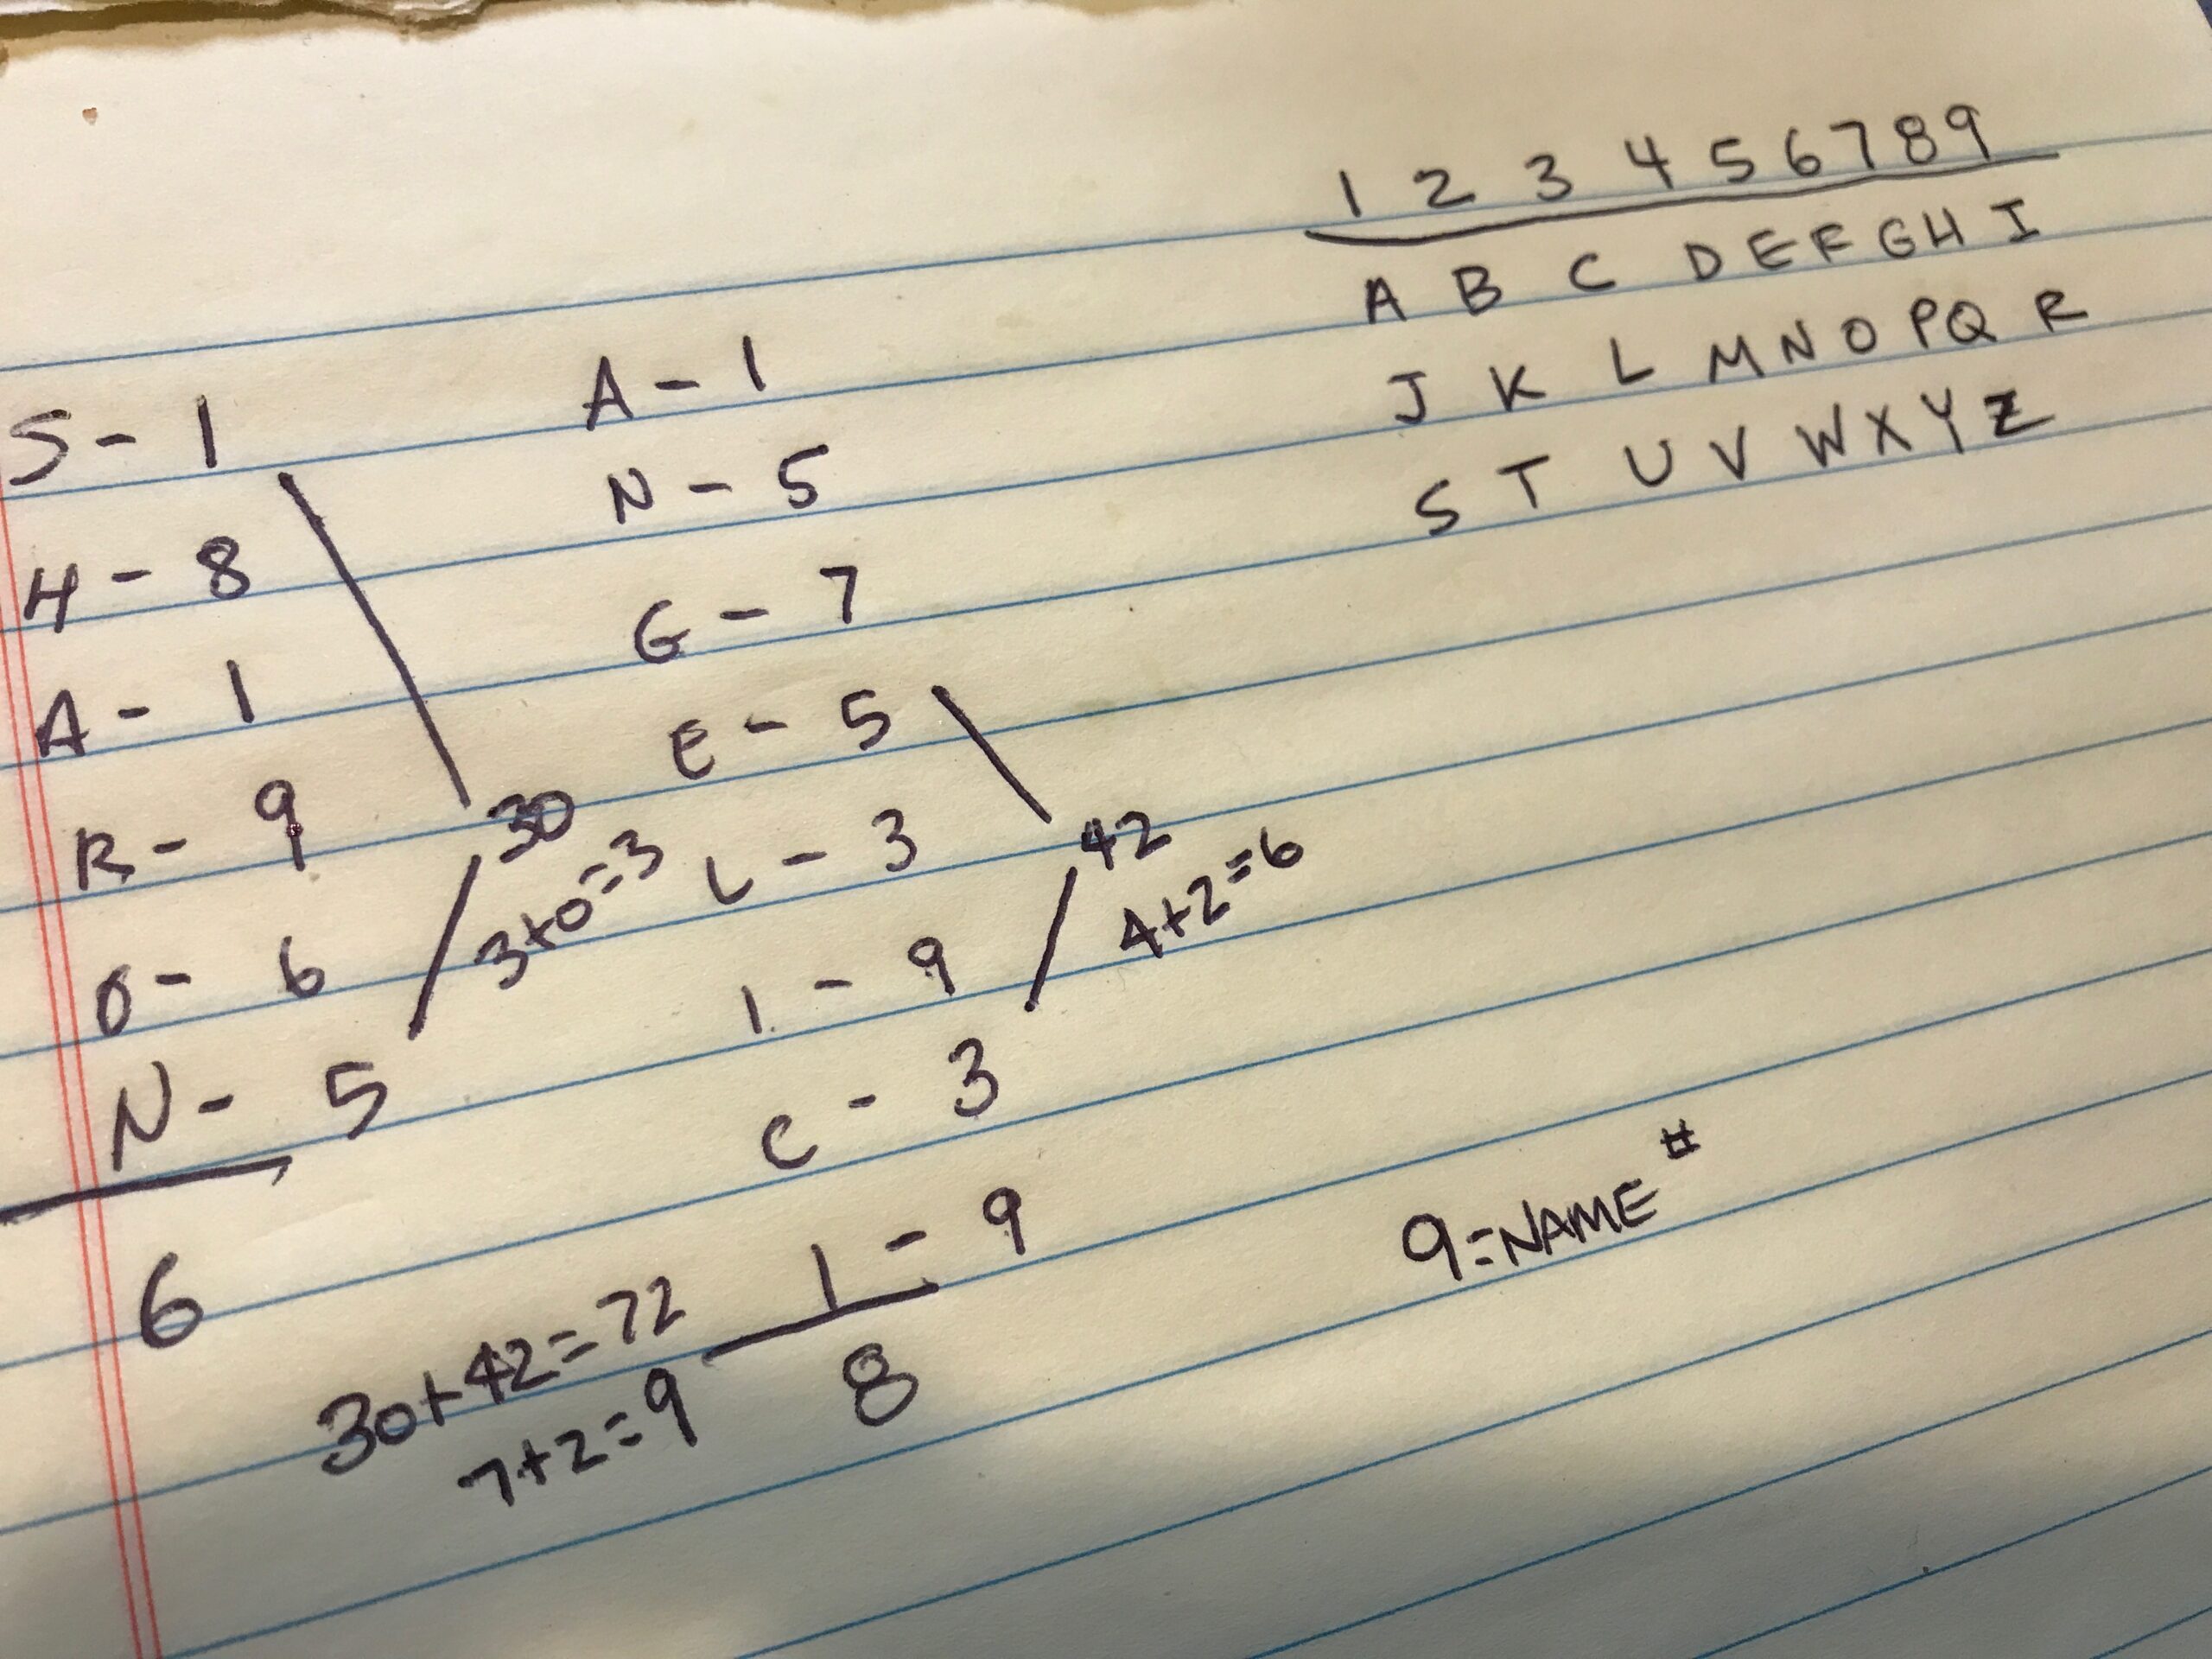 1 2 3 4 5 6 7 8 9
A B C D E F G H I
J K L M N O P Q R
S T U V W X Y Z
S - 1
H - 8
A - 1
R - 9
O - 6
N - 5
6
30
3+0=3
A - 1
N - 5
G - 7
E - 5
L - 3
I - 9
C - 3
I - 9
8
42
4+2=6
30+42=72
7+2=9
9=NAME #